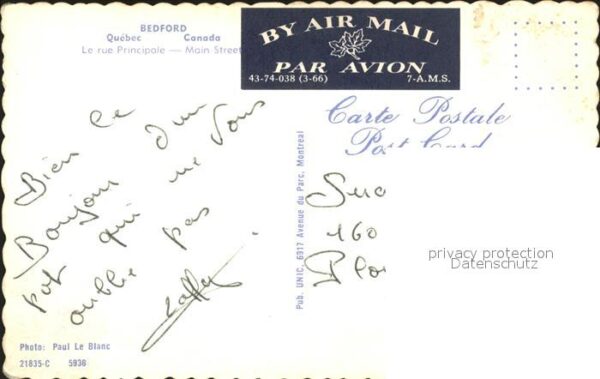 BEDFORD
Québec Canada
Le rue Principale — Main Street
BY AIR MAIL
PAR AVION
43-74-038 (3-66) 7-A.M.S.
Carte Postale
Post Card
Pub. UNIC, 6917 Avenue du Parc, Montreal
Bien le
Bonjour d'un
qui ne vous
oublie pas
160
privacy protection
Datenschutz
Photo: Paul Le Blanc
21835-C 5936